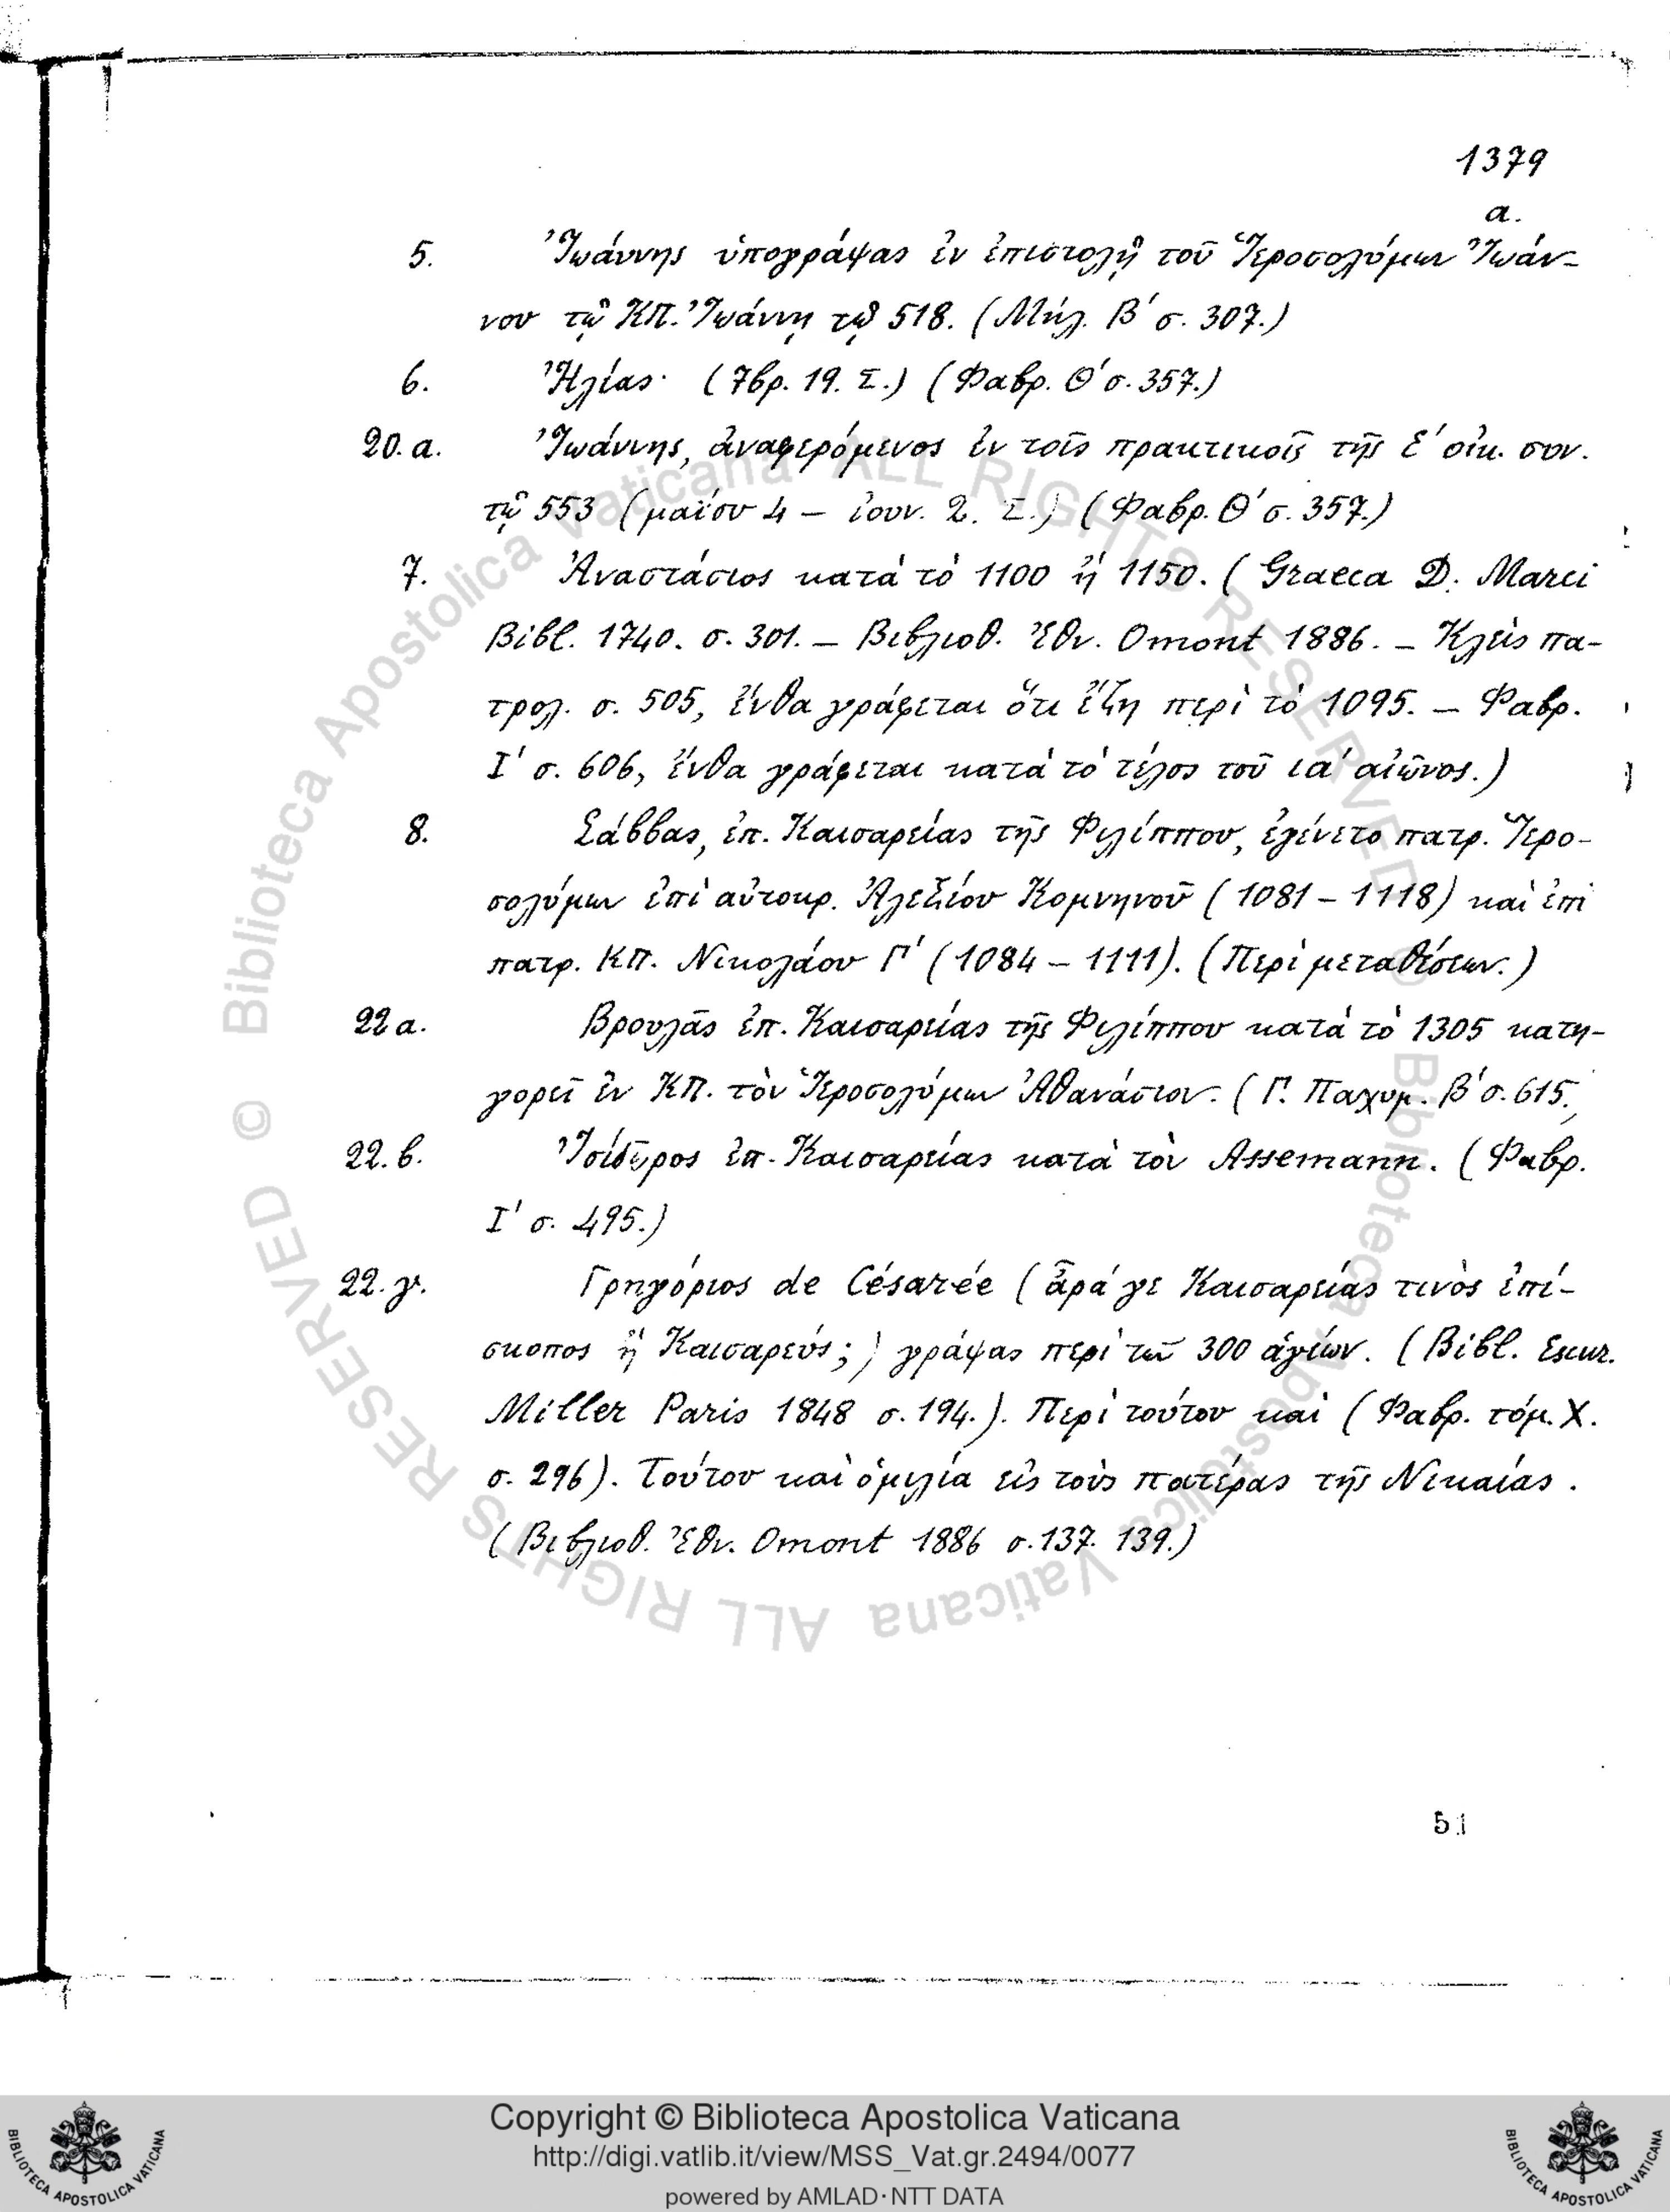 1379
α.
5. Ἰωάννης ὑπογράψας ἐν ἐπιστολῇ τοῦ Ἱεροσολύμων Ἰωάν-
νου τῷ ΚΠ. Ἰωάννῃ τῷ 518. (Μήλ. Β' σ. 307.)
6. Ἠλίας· (7βρ. 19. Σ.) (Φαβρ. Θ' σ. 357.)
20. α. Ἰωάννης, ἀναφερόμενος ἐν τοῖς πρακτικοῖς τῆς Ε' οἰκ. συν.
τῷ 553 (μαΐου 4 – ἰουν. 2. Σ.) (Φαβρ. Θ' σ. 357.)
7. Ἀναστάσιος κατὰ τὸ 1100 ἢ 1150. (Graeca D. Marci
Bibl. 1740. σ. 301. – Βιβλιοθ. Ἐθν. Omont 1886. – Κλεὶς πα-
τρολ. σ. 505, ἔνθα γράφεται ὅτι ἔζη περὶ τὸ 1095. – Φαβρ.
Ι' σ. 606, ἔνθα γράφεται κατὰ τὸ τέλος τοῦ ια' αἰῶνος.)
8. Σάββας, ἐπ. Καισαρείας τῆς Φιλίππου, ἐγένετο πατρ. Ἱερο-
σολύμων ἐπὶ αὐτοκρ. Ἀλεξίου Κομνηνοῦ (1081 – 1118) καὶ ἐπὶ
πατρ. ΚΠ. Νικολάου Γ' (1084 – 1111). (Περὶ μεταθέσεων.)
22 α. Βρουλᾶς ἐπ. Καισαρείας τῆς Φιλίππου κατὰ τὸ 1305 κατη-
γορεῖ ἐν ΚΠ. τὸν Ἱεροσολύμων Ἀθανάσιον. (Γ. Παχυμ. β' σ. 615.
22. β. Ἰσίδωρος ἐπ. Καισαρείας κατὰ τὸν Assemann. (Φαβρ.
Ι' σ. 495.)
22. γ. Γρηγόριος de Césarée (ἆρά γε Καισαρείας τινὸς ἐπί-
σκοπος ἢ Καισαρεύς;) γράψας περὶ τῶν 300 ἁγίων. (Bibl. Escur.
Miller Paris 1848 σ. 194.). Περὶ τούτου καὶ (Φαβρ. τόμ. X.
σ. 296). Τούτου καὶ ὁμιλία εἰς τοὺς πατέρας τῆς Νικαίας.
(Βιβλιοθ. Ἐθν. Omont 1886 σ. 137. 139.)
51
© Biblioteca Apostolica Vaticana ALL RIGHTS RESERVED © Biblioteca Apostolica Vaticana ALL RIGHTS RESERVED
BIBLIOTECA APOSTOLICA VATICANA
Copyright © Biblioteca Apostolica Vaticana
http://digi.vatlib.it/view/MSS_Vat.gr.2494/0077
powered by AMLAD·NTT DATA
BIBLIOTECA APOSTOLICA VATICANA